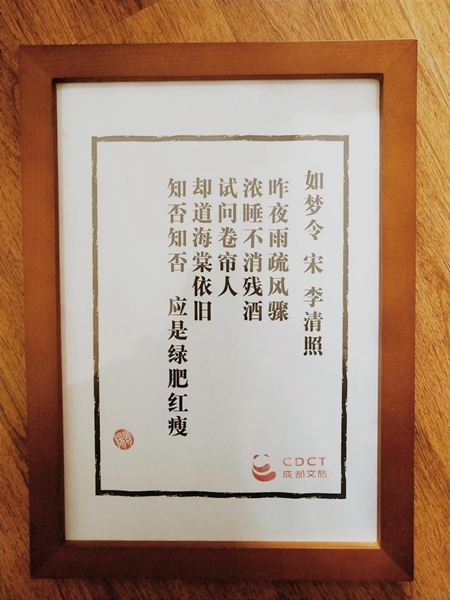 如梦令 宋 李清照
昨夜雨疏风骤
浓睡不消残酒
试问卷帘人
却道海棠依旧
知否知否 应是绿肥红瘦
CDCT
成都文旅